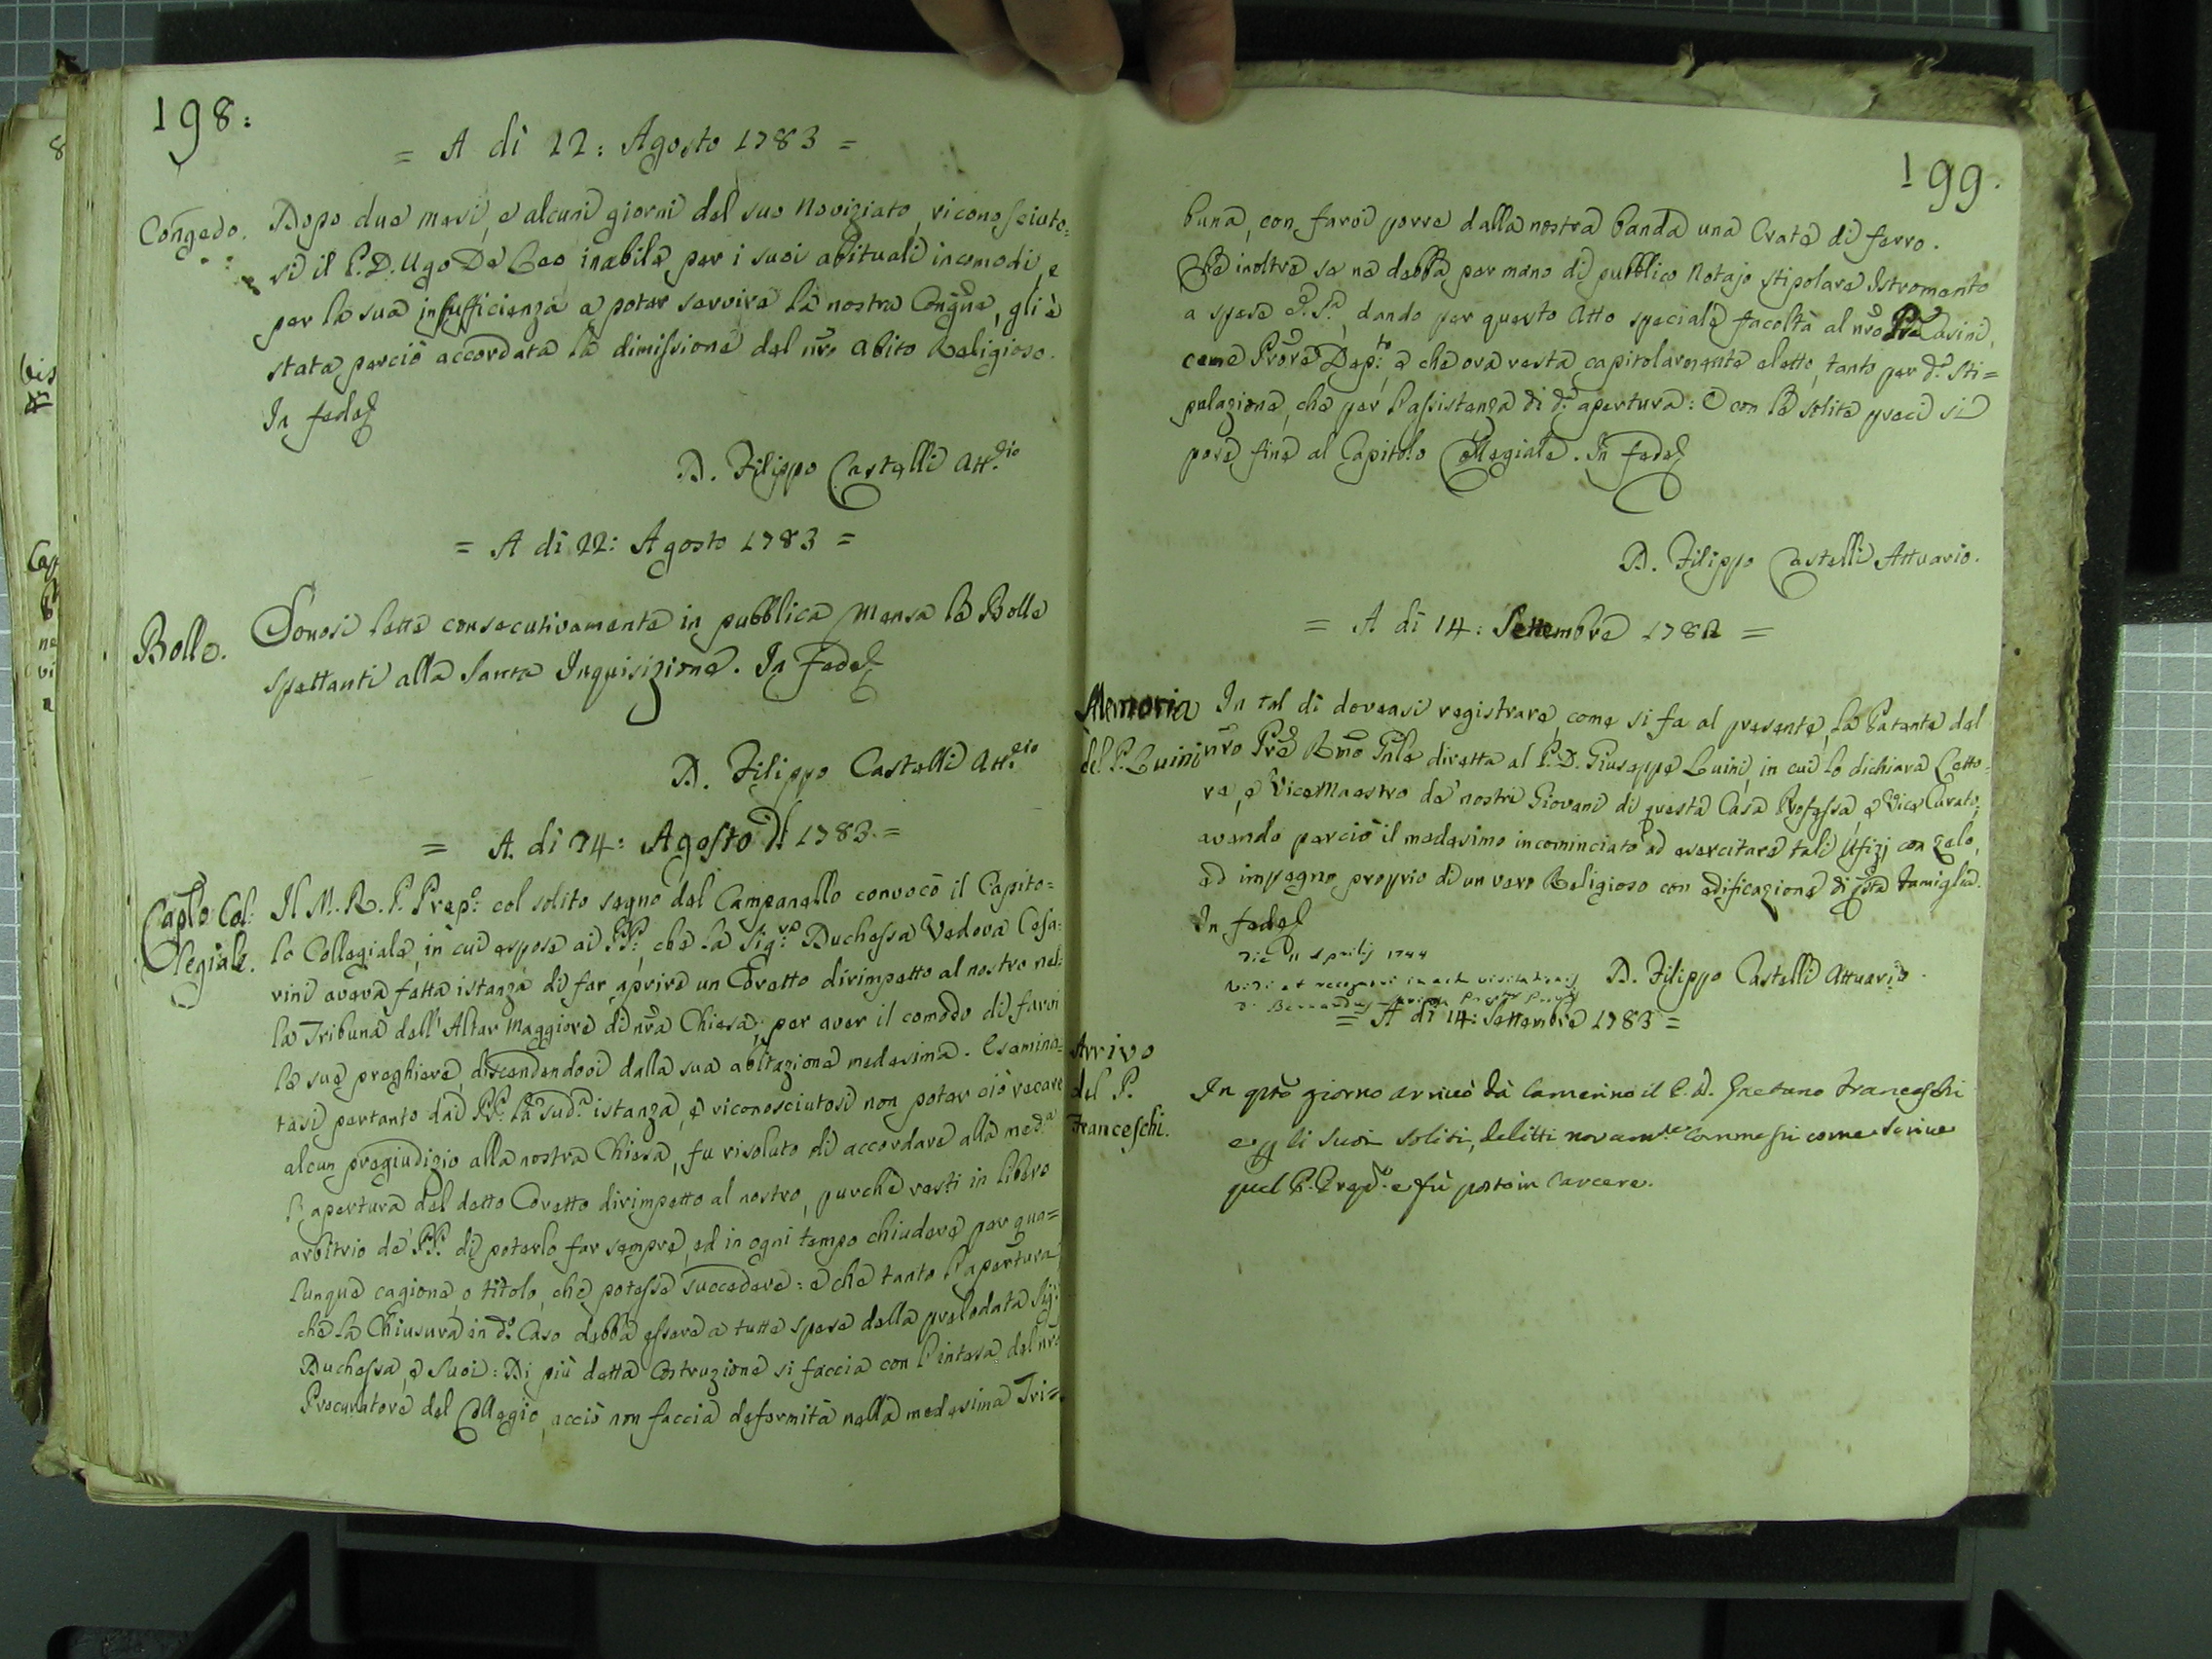 198:
= A dì 22: Agosto 1783 =
Congedo.
Dopo due mesi, e alcuni giorni del suo Noviziato, riconosciuto=
si il P. D. Ugo De Leo inabile per i suoi abituali incomodi, e
per la sua insufficienza a poter servire la nostra Congñe, gli è
stata perciò accordata la dimissione del nrõ abito Religioso.
In fede
D. Filippo Castelli Att.rio
= A dì 22: Agosto 1783 =
Bolle.
Sonosi lette consecutivamente in pubblica Mensa le Bolle
spettanti alla Santa Inquisizione. In fede
D. Filippo Castelli Att.rio
= A. dì 24: Agosto 1783. =
Caplo Col:
legiale.
Il M. R. P. Prep.o col solito segno del Campanello convocò il Capito=
lo Collegiale, in cui espose ai PP:, che la Sig.ra Duchessa Vedova Cesa:
rini aveva fatta istanza di far aprire un Coretto dirimpetto al nostro nel:
la Tribuna dell'Altar Maggiore di nrã Chiesa, per aver il comodo di farvi
le sue preghiere, discendendovi dalla sua abitazione medesima. Esamina=
tasi pertanto dai PP. la sud.a istanza, e riconosciutosi non poter ciò recare
alcun pregiudizio alla nostra Chiesa, fu risoluto di accordare alla med.a
l'apertura del detto Coretto dirimpetto al nostro, purchè resti in libero
arbitrio de' PP. di poterlo far sempre, ed in ogni tempo chiudere per qua=
lunque cagione, o titolo, che potesse succedere: e che tanto l'apertura,
che la Chiusura in d.o Caso debba essere a tutte spese della prelodata Sig.
Duchessa, e Suoi: Di più detta Costruzione si faccia con l'intesa del nrõ
Procuratore del Collegio, acciò non faccia deformità nella medesima Tri=
199.
buna, con farvi porre dalla nostra banda una Crate di ferro.
Che inoltre se ne debba per mano di pubblico Notajo stipolare Istromento
a spese dando per questo Atto speciale facoltà al nrõ
come Dep:to e che ora resta capitolarmente eletto, tanto per d.a Sti=
pulazione, che per l'assistenza di d.a apertura: E con le solite preci si
pose fine al Capitolo Collegiale. In fede
D. Filippo Castelli Attuario.
= A dì 14: Settembre =
Memoria
del P. Luini
In tal dì doveasi registrare, come si fa al presente, la Patente del
nrõ Prẽ Rmõ Gnle diretta al P. D. Giuseppe Luini, in cui lo dichiara Letto=
re, e ViceMaestro de' nostri Giovani di questa Casa Professa, e Vice Curato;
avendo perciò il medesimo incominciato ad esercitare tali Ufizj con zelo,
ed impegno proprio di un vero Religioso con edificazione di q̃sta Famiglia.
In fede
Die 11 Aprilis
Vidi et recognovi in actu visitationis
D. Filippo Castelli Attuario.
= A dì 14: Settembre 1783 =
Arrivo
del P.
Franceschi.
In q̃sto giorno arrivò da Camerino il P. D. Gaetano Franceschi
e p li suoi soliti, delitti novam.te commessi come scrive
quel P. Prep.o e fù posto in Carcere.